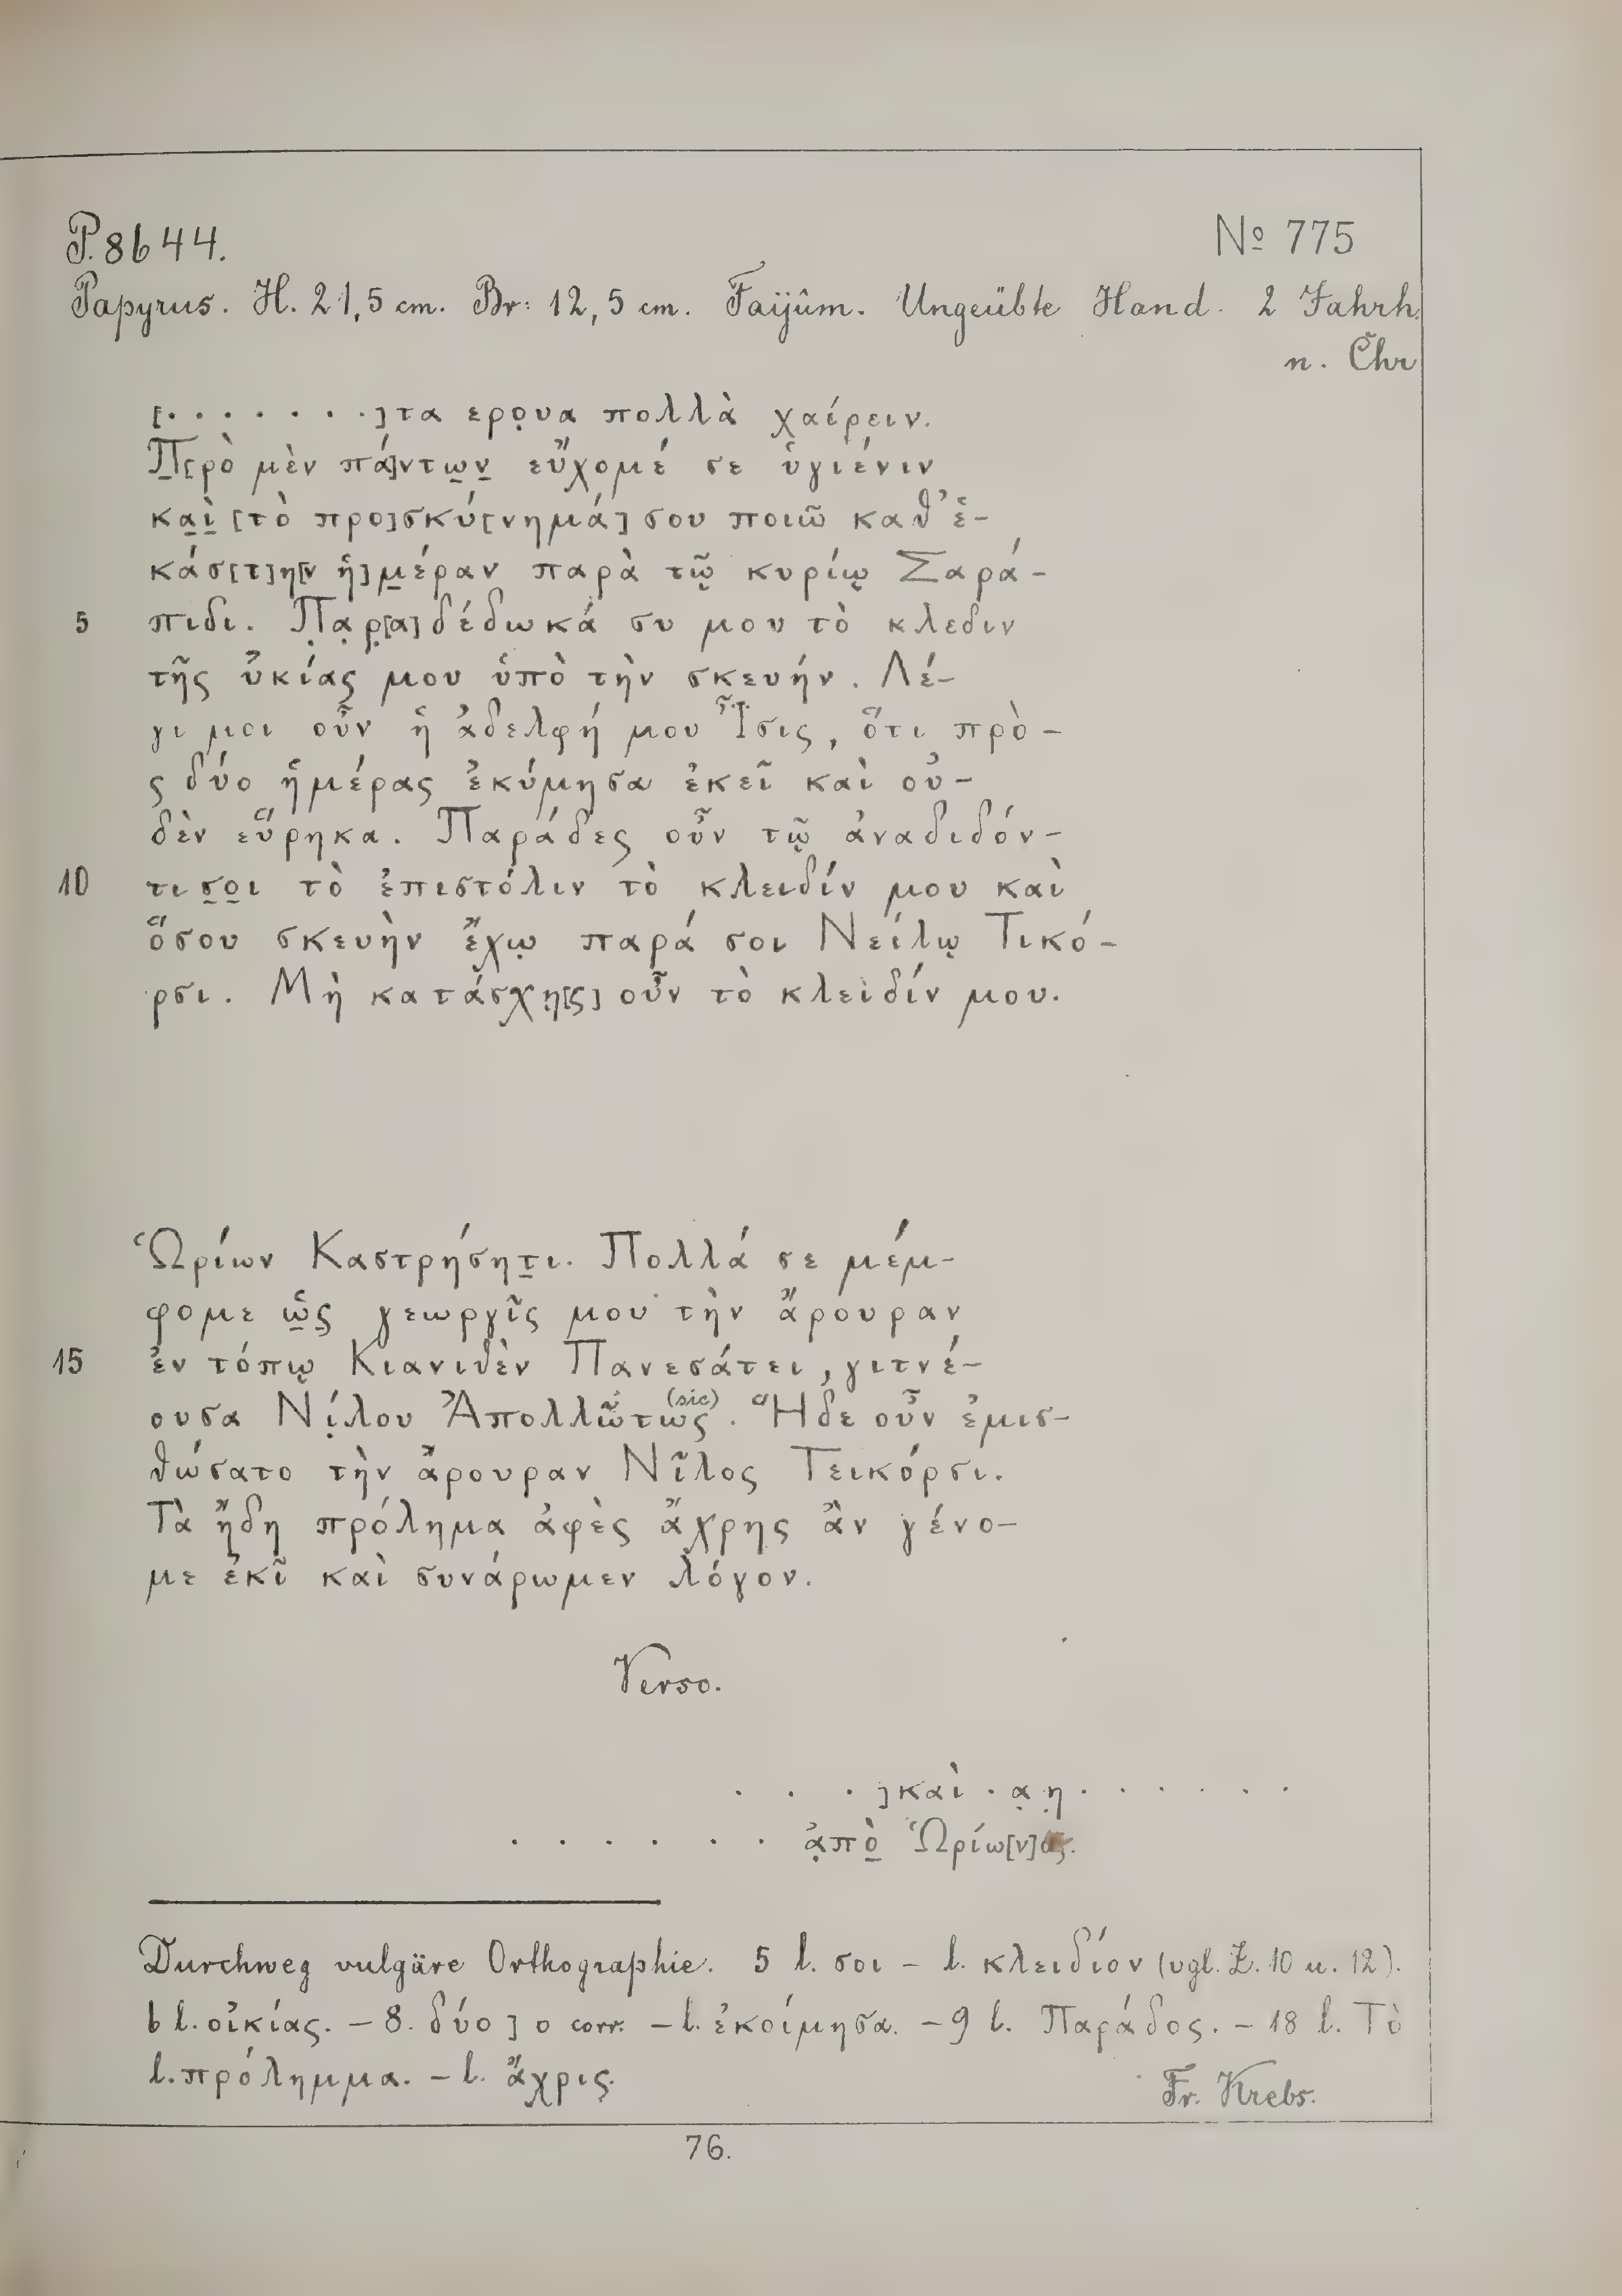 P. 8644.
Nº 775
Papyrus. H. 21,5 cm. Br: 12,5 cm. Faijûm. Ungeübte Hand. 2 Jahrh.
n. Chr
[· · · · · · ·]τα ερο̣υα πολλὰ χαίρειν.
Π̣[ρὸ μὲν πά]ντω̣ν̣ εὔχομέ σε ὑγιένιν
κα̣ὶ̣ [τὸ προ]σκύ[νημά] σου ποιῶ καθ' ἑ-
κάσ[τ]η[ν ἡ]μ̣έραν παρὰ τῷ κυρίῳ Σαρά-
5 πιδι. Π̣α̣ρ̣[α]δέδωκά συ μου τὸ κλεδιν
τῆς ὐκίας μου ὑπὸ τὴν σκευήν. Λέ-
γι μοι οὖν ἡ ἀδελφή μου Ἶσις, ὅτι πρὸ-
ς δύο ἡμέρας ἐκύμησα ἐκεῖ καὶ οὐ-
δὲν εὕρηκα. Παράδες οὖν τῷ ἀναδιδόν-
10 τι σ̣ο̣ι τὸ ἐπιστόλιν τὸ κλειδίν μου καὶ
ὅσου σκευὴν ἔχω̣ παρά σοι Νείλῳ Τικό-
ρσι. Μὴ κατάσχη̣[ς] οὖν τὸ κλειδίν μου.
Ὡρίων Καστρήσητ̣ι. Πολλά σε μέμ-
φομε ὡ̣ς̣ γεωργῖς μου τὴν ἄρουραν
15 ἐν τόπῳ Κιανιθὲν Πανεσάτει, γιτνέ-
ουσα Νί̣λου Ἀπολλῶτως (sic). Ἥδε οὖν ἐμισ-
θώσατο τὴν ἄρουραν Νῖλος Τεικόρσι.
Τὰ ἤδη πρόλημα ἀφὲς ἄχρης ἂν γένο-
με ἐκῖ καὶ συνάρωμεν λόγον.
Verso.
· · ·]καὶ · α̣ η̣ · · · · · ·
· · · · · · ἀ̣πὸ̣ Ὡρίω[ν]ος.
Durchweg vulgäre Orthographie. 5 l. σοι – l. κλειδίον (vgl. Z. 10 u. 12).
6 l. οἰκίας. – 8. δύο] ο corr. – l. ἐκοίμησα. – 9 l. Παράδος. – 18 l. Τὸ
l. πρόλημμα. – l. ἄχρις.
Fr. Krebs.
76.